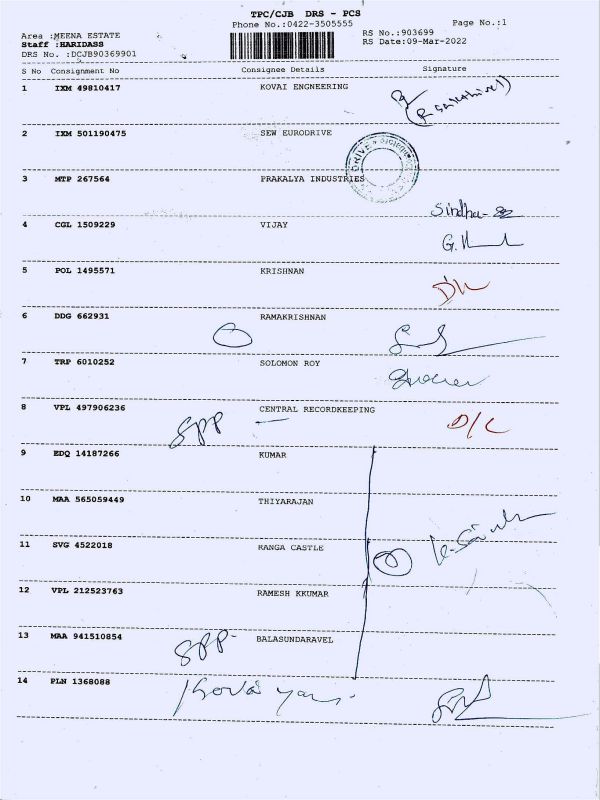 TPC/CJB DRS - PCS
Phone No.:0422-3505555
Page No.:1
Area :MEENA ESTATE
RS No.:903699
Staff :HARIDASS
RS Date:09-Mar-2022
DRS No. :DCJB90369901
S No Consignment No Consignee Details Signature
1 IXM 49810417 KOVAI ENGNEERING
2 IXM 501190475 SEW EURODRIVE
3 MTP 267564 PRAKALYA INDUSTRIES
Sindha
4 CGL 1509229 VIJAY
5 POL 1495571 KRISHNAN
6 DDG 662931 RAMAKRISHNAN
7 TRP 6010252 SOLOMON ROY
8 VPL 497906236 CENTRAL RECORDKEEPING
SPP D/C
9 EDQ 14187266 KUMAR
10 MAA 565059449 THIYARAJAN
11 SVG 4522018 RANGA CASTLE
12 VPL 212523763 RAMESH KKUMAR
13 MAA 941510854 BALASUNDARAVEL
SPP
14 PLN 1368088